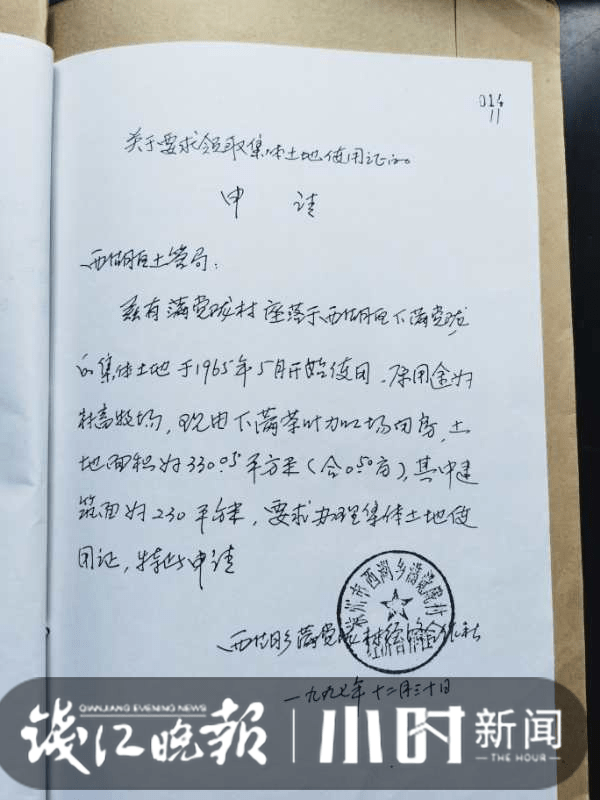 014
11
关于要求领取集体土地使用证的
申 请
西湖区土管局:
兹有满觉陇村座落于西湖区下满觉陇
的集体土地于1965年5月开始使用,原用途为
林畜牧场,现由下满茶叶加工场用房,土
地面积为330.05平方米(合0.50亩),其中建
筑面为230平方米,要求办理集体土地使
用证,特此申请
杭州市西湖乡满觉陇村
经济合作社
西湖乡满觉陇村经济合作社
一九九七年十二月三十日
QIANJIANG EVENING NEWS
钱江晚报
小时新闻
THE HOUR